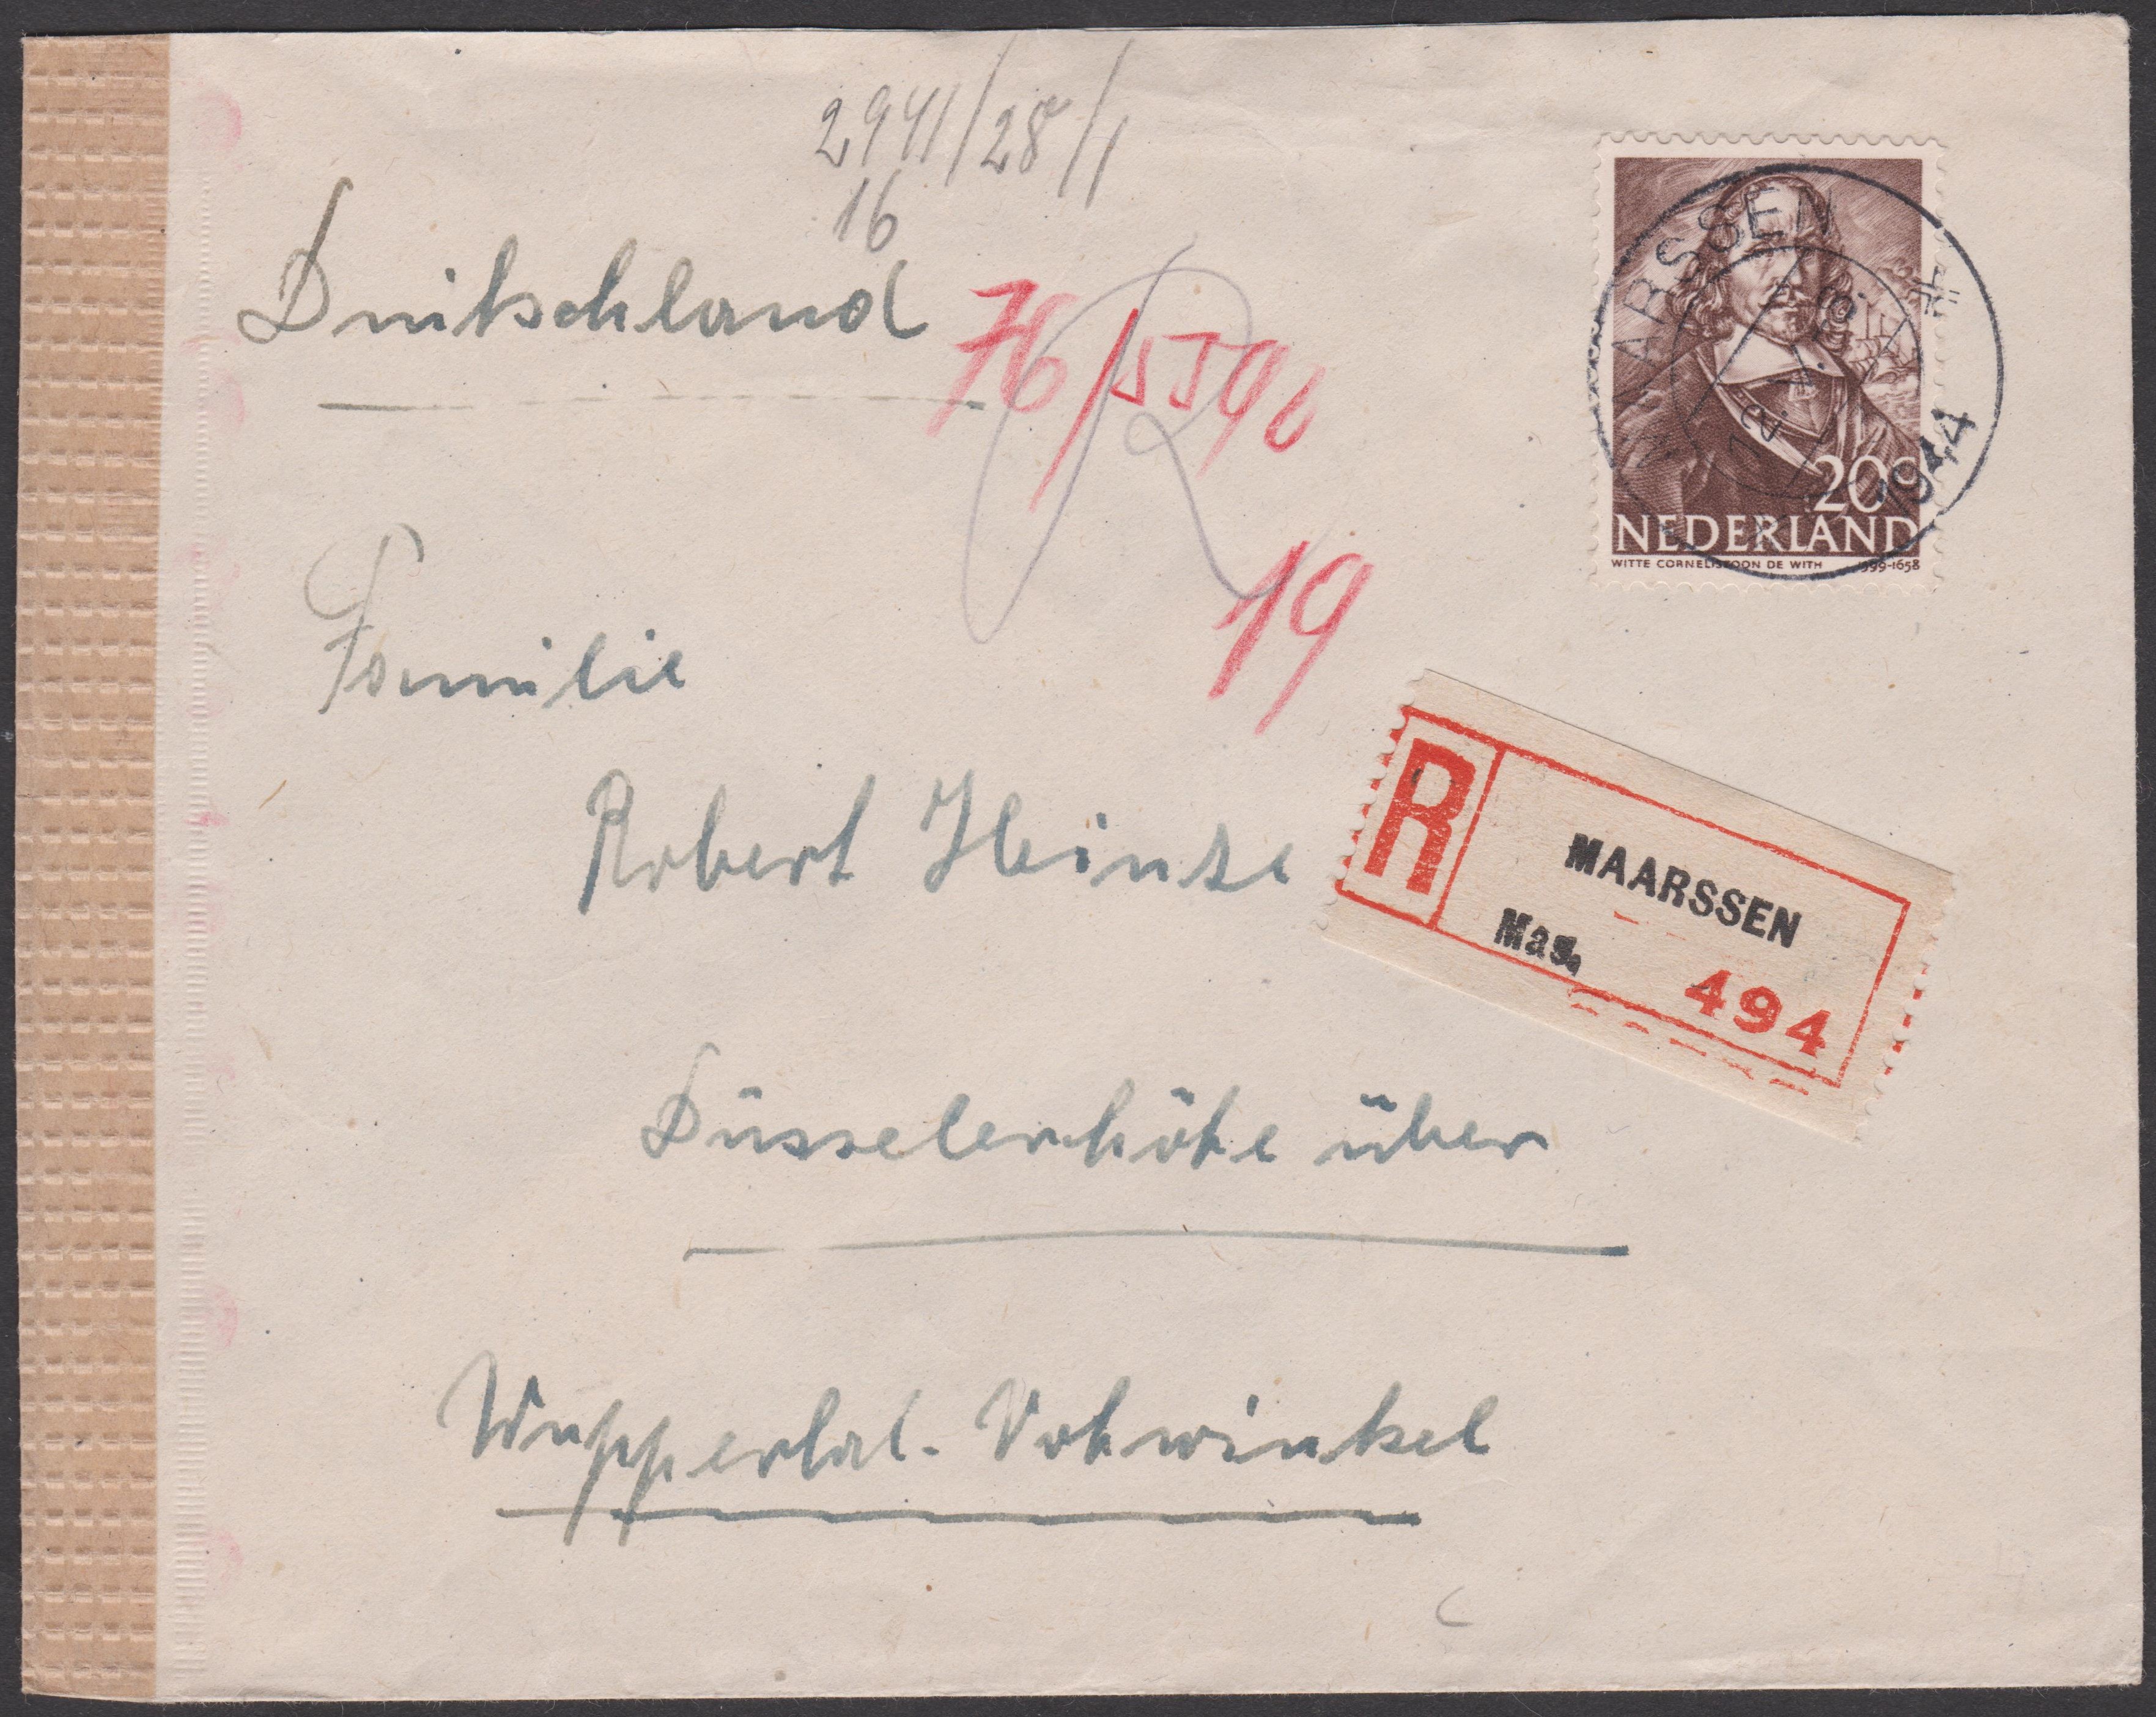 2941/28/1
16
Duitschland
76/5590
R
19
MAARSSEN
1944
20c
NEDERLAND
WITTE CORNELISZOON DE WITH 1599-1658
Familie
Robert Heinze
R
MAARSSEN
Mas.
494
Düsselerhöhe über
Wuppertal-Vohwinkel